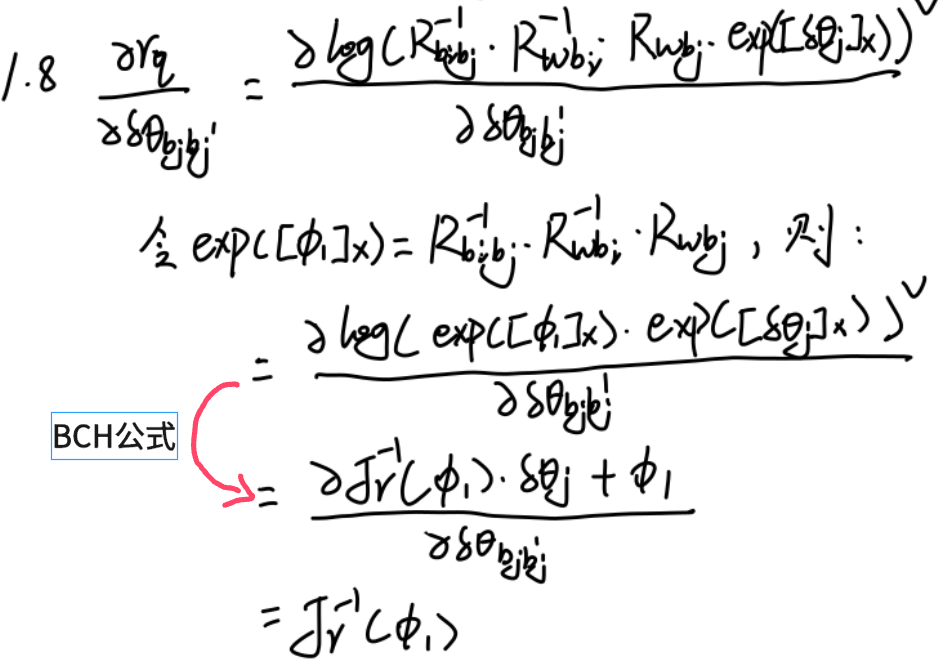 1.8 ∂r_q / ∂δθ_{b_j b_j'} = ∂ log(R_{b_i b_j}^{-1} · R_{wb_i}^{-1} · R_{wb_j} · exp([δθ_j]_×))^∨ / ∂δθ_{b_j b_j'}
令 exp([φ_1]_×) = R_{b_i b_j}^{-1} · R_{wb_i}^{-1} · R_{wb_j} , 则 :
= ∂ log( exp([φ_1]_×) · exp([δθ_j]_×) )^∨ / ∂δθ_{b_j b_j'}
BCH公式
= ∂ J_r^{-1}(φ_1) · δθ_j + φ_1 / ∂δθ_{b_j b_j'}
= J_r^{-1}(φ_1)